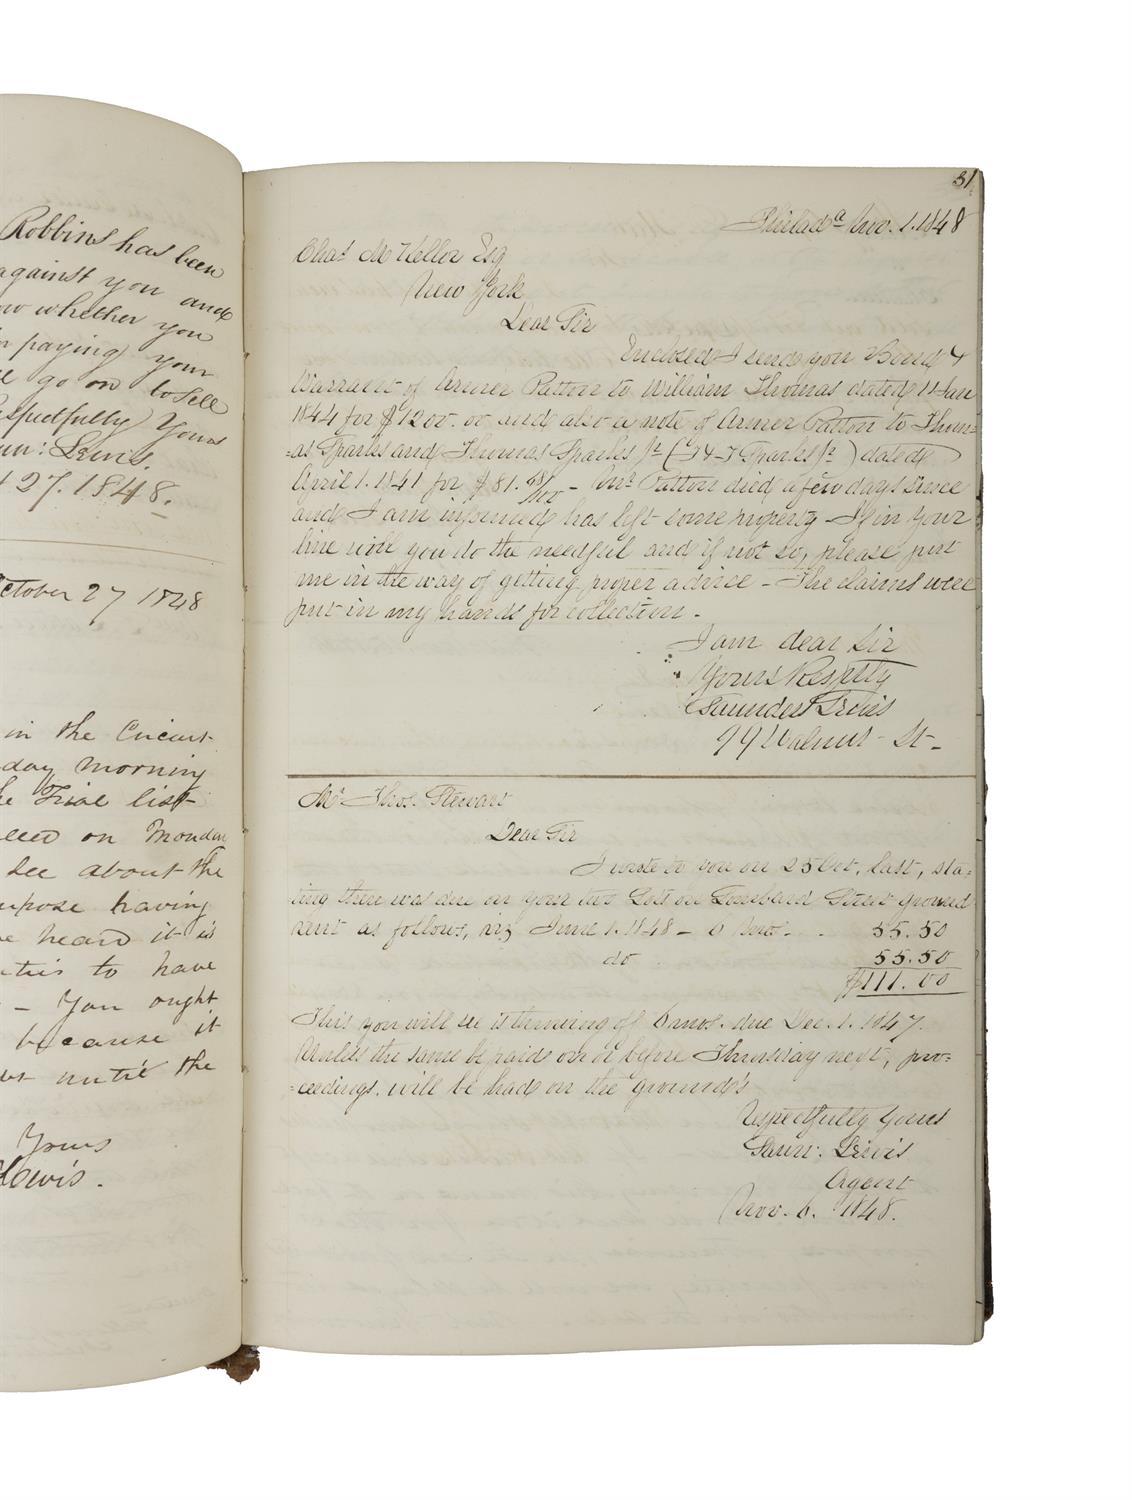 Robbins has been
against you and
whether you
paying your
go on to sell
Respectfully Yours
Lewis.
27. 1848.
October 27 1848
in the Circuit
day morning
the Trial list
on Monday
see about the
having
heard it is
to have
– You ought
because it
until the
Yours
Lewis.
31
Philada Nov. 1. 1848
Chas. M Keller Esq
New York
Dear Sir
Enclosed I send you Bond &
Warrant of Abner Patton to William Thomas dated 11 Jan
1844 for $1200.00 and also a note of Abner Patton to Thom=
=as Sparks and Thomas Sparks Jr (T & T Sparks Jr) dated
April 1. 1841 for $81.58/100 – Mr. Patton died a few days since
and I am informed has left some property – If in your
line will you do the needful and if not so, please put
me in the way of getting proper advice – The claims were
put in my hands for collection –
I am dear Sir
Yours Resptly
Saunders Lewis
99 Walnut St –
Mr. Thos. Stewart
Dear Sir
I wrote to you on 25 Oct. last, sta=
ting there was due on your two Lots on Lombard Street ground
rent as follows, viz June 1. 1848 – 6 Mos. 55.50
do 55.50
$111.00
This you will see is throwing off 6 mos. due Dec. 1. 1847.
Unless the same be paid on or before Thursday next, pro=
=ceedings will be had on the ground's
Respectfully Yours
Saun: Lewis
Agent
Nov. 6. 1848.